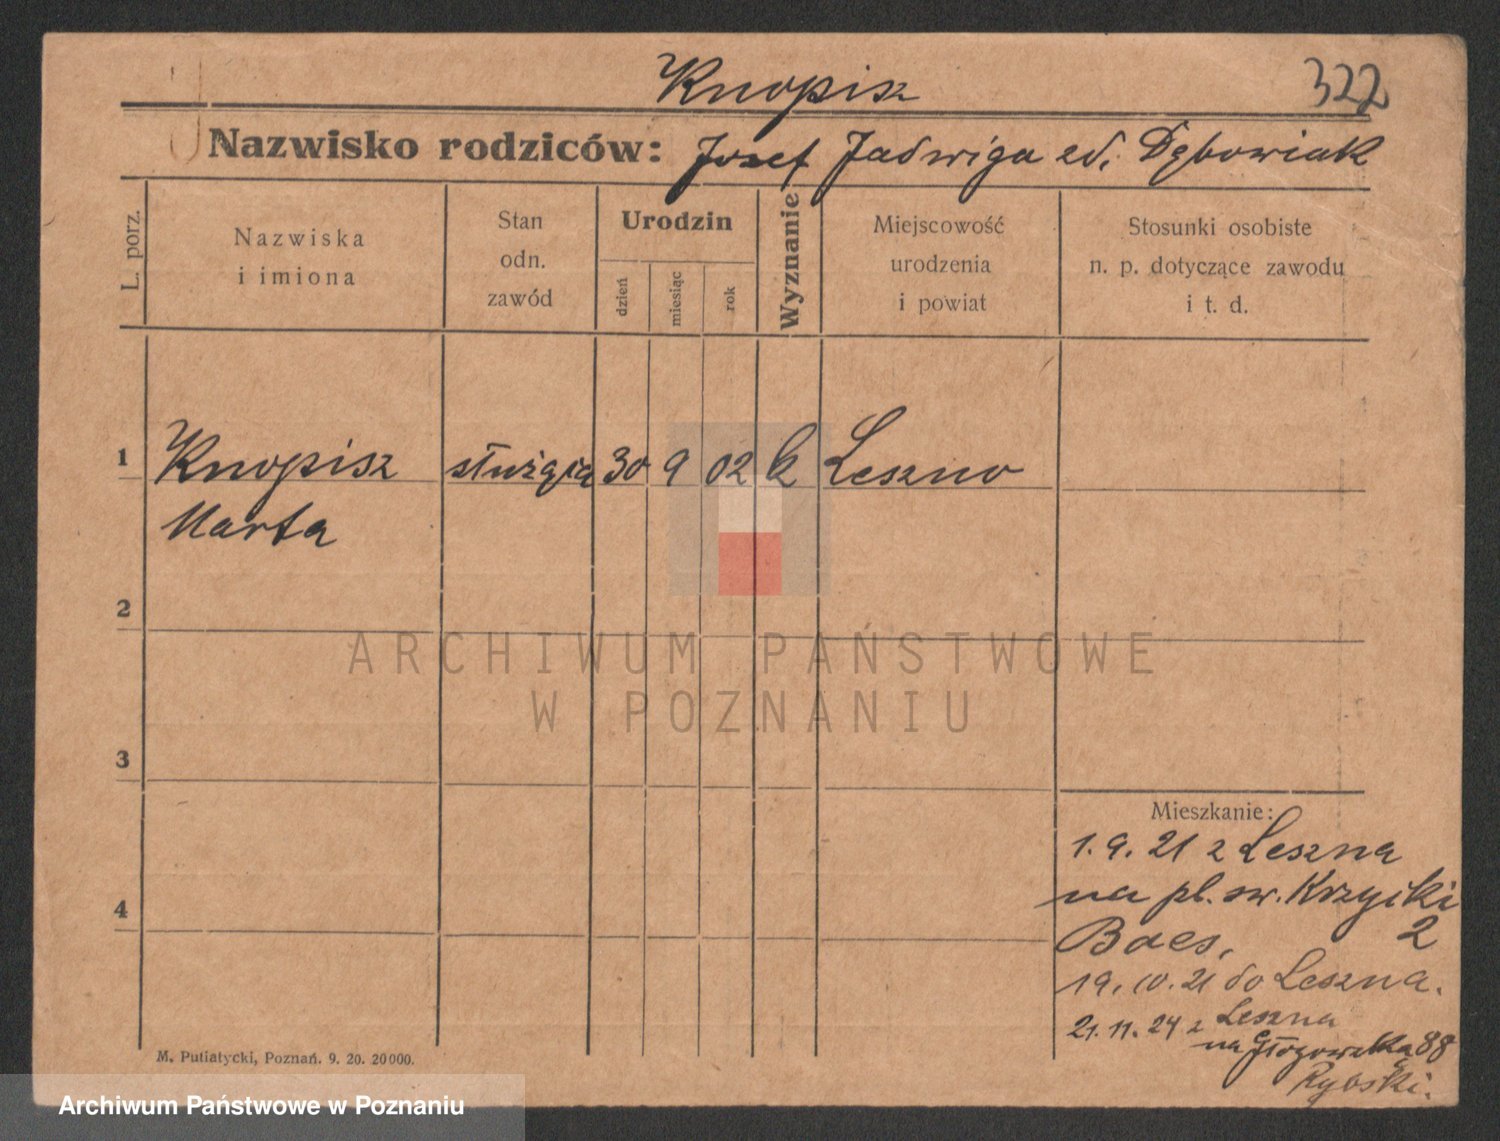 Knopisz
322
Nazwisko rodziców: Jozef Jadwiga zd. Dębowiak
L. porz.
Nazwiska
i imiona
Stan
odn.
zawód
Urodzin
dzień
miesiąc
rok
Wyznanie
Miejscowość
urodzenia
i powiat
Stosunki osobiste
n. p. dotyczące zawodu
i t. d.
1 Knopisz służąca 30 9 02 k Leszno
Marta
2
3
4
Mieszkanie:
1. 9. 21 z Leszna
na pl. sw. Krzyski
2
19. 10. 21 do Leszna.
21. 11. 24 z Leszna
na Głogowska 88
Rybski.
M. Putiatycki, Poznań. 9. 20. 20000.
ARCHIWUM PAŃSTWOWE
W POZNANIU
Archiwum Państwowe w Poznaniu